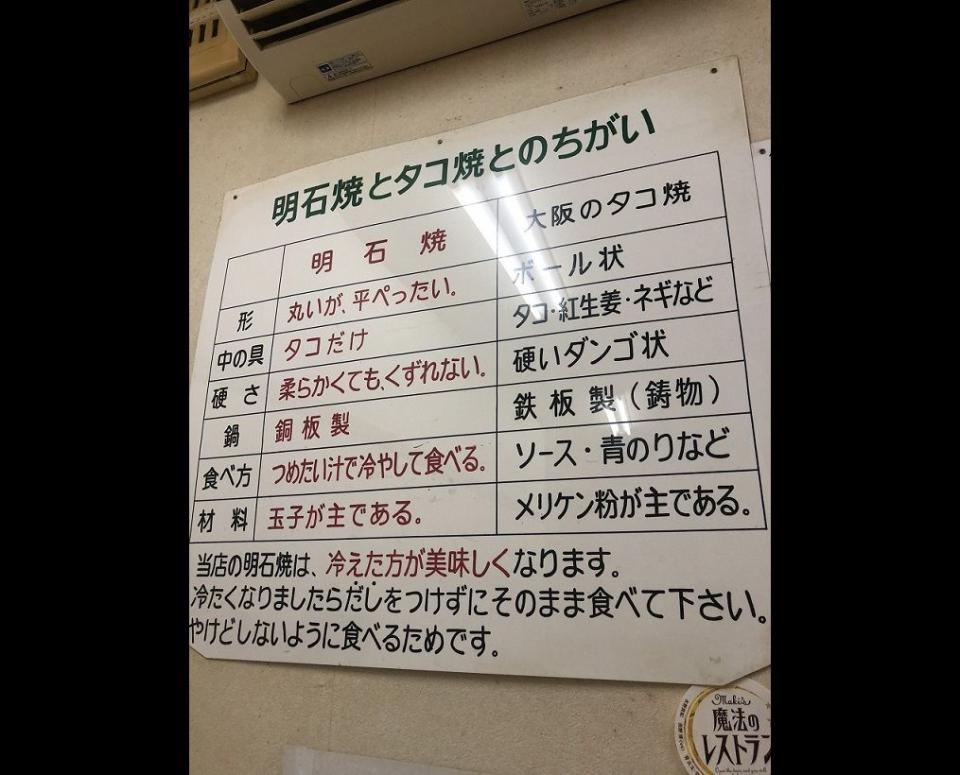 明石焼とタコ焼とのちがい
明石焼 大阪のタコ焼
形 丸いが、平ぺったい。 ボール状
中の具 タコだけ タコ・紅生姜・ネギなど
硬さ 柔らかくても、くずれない。 硬いダンゴ状
鍋 銅板製 鉄板製(鋳物)
食べ方 つめたい汁で冷やして食べる。 ソース・青のりなど
材料 玉子が主である。 メリケン粉が主である。
当店の明石焼は、冷えた方が美味しくなります。
冷たくなりましたらだしをつけずにそのまま食べて下さい。
やけどしないように食べるためです。
Maki's
魔法の
レストラン